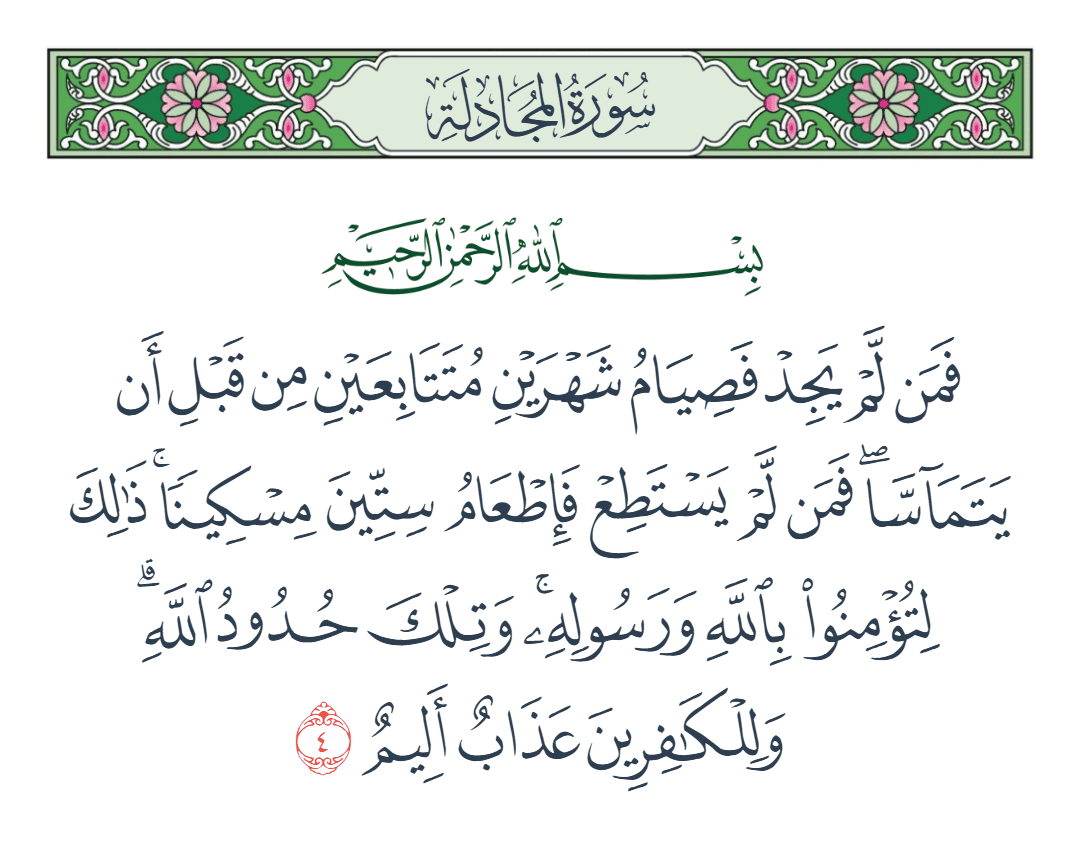 سُورَةُ المُجَادلَةِ
بِسْمِ ٱللَّهِ ٱلرَّحْمَٰنِ ٱلرَّحِيمِ
فَمَن لَّمْ يَجِدْ فَصِيَامُ شَهْرَيْنِ مُتَتَابِعَيْنِ مِن قَبْلِ أَن
يَتَمَآسَّاۖ فَمَن لَّمْ يَسْتَطِعْ فَإِطْعَامُ سِتِّينَ مِسْكِينٗاۚ ذَٰلِكَ
لِتُؤْمِنُواْ بِٱللَّهِ وَرَسُولِهِۦۚ وَتِلْكَ حُدُودُ ٱللَّهِۗ
وَلِلْكَٰفِرِينَ عَذَابٌ أَلِيمٌ ٤